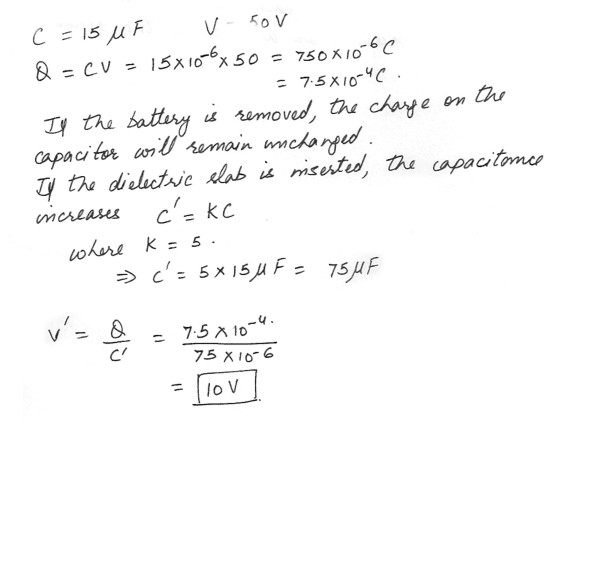 C = 15 μF V - 50V
Q = CV = 15×10⁻⁶×50 = 750×10⁻⁶C
= 7.5×10⁻⁴C.
If the battery is removed, the charge on the
capacitor will remain unchanged.
If the dielectric slab is inserted, the capacitance
increases C' = KC
where K = 5.
⇒ C' = 5×15μF = 75μF
V' = Q/C' = 7.5×10⁻⁴./75×10⁻⁶
= 10V